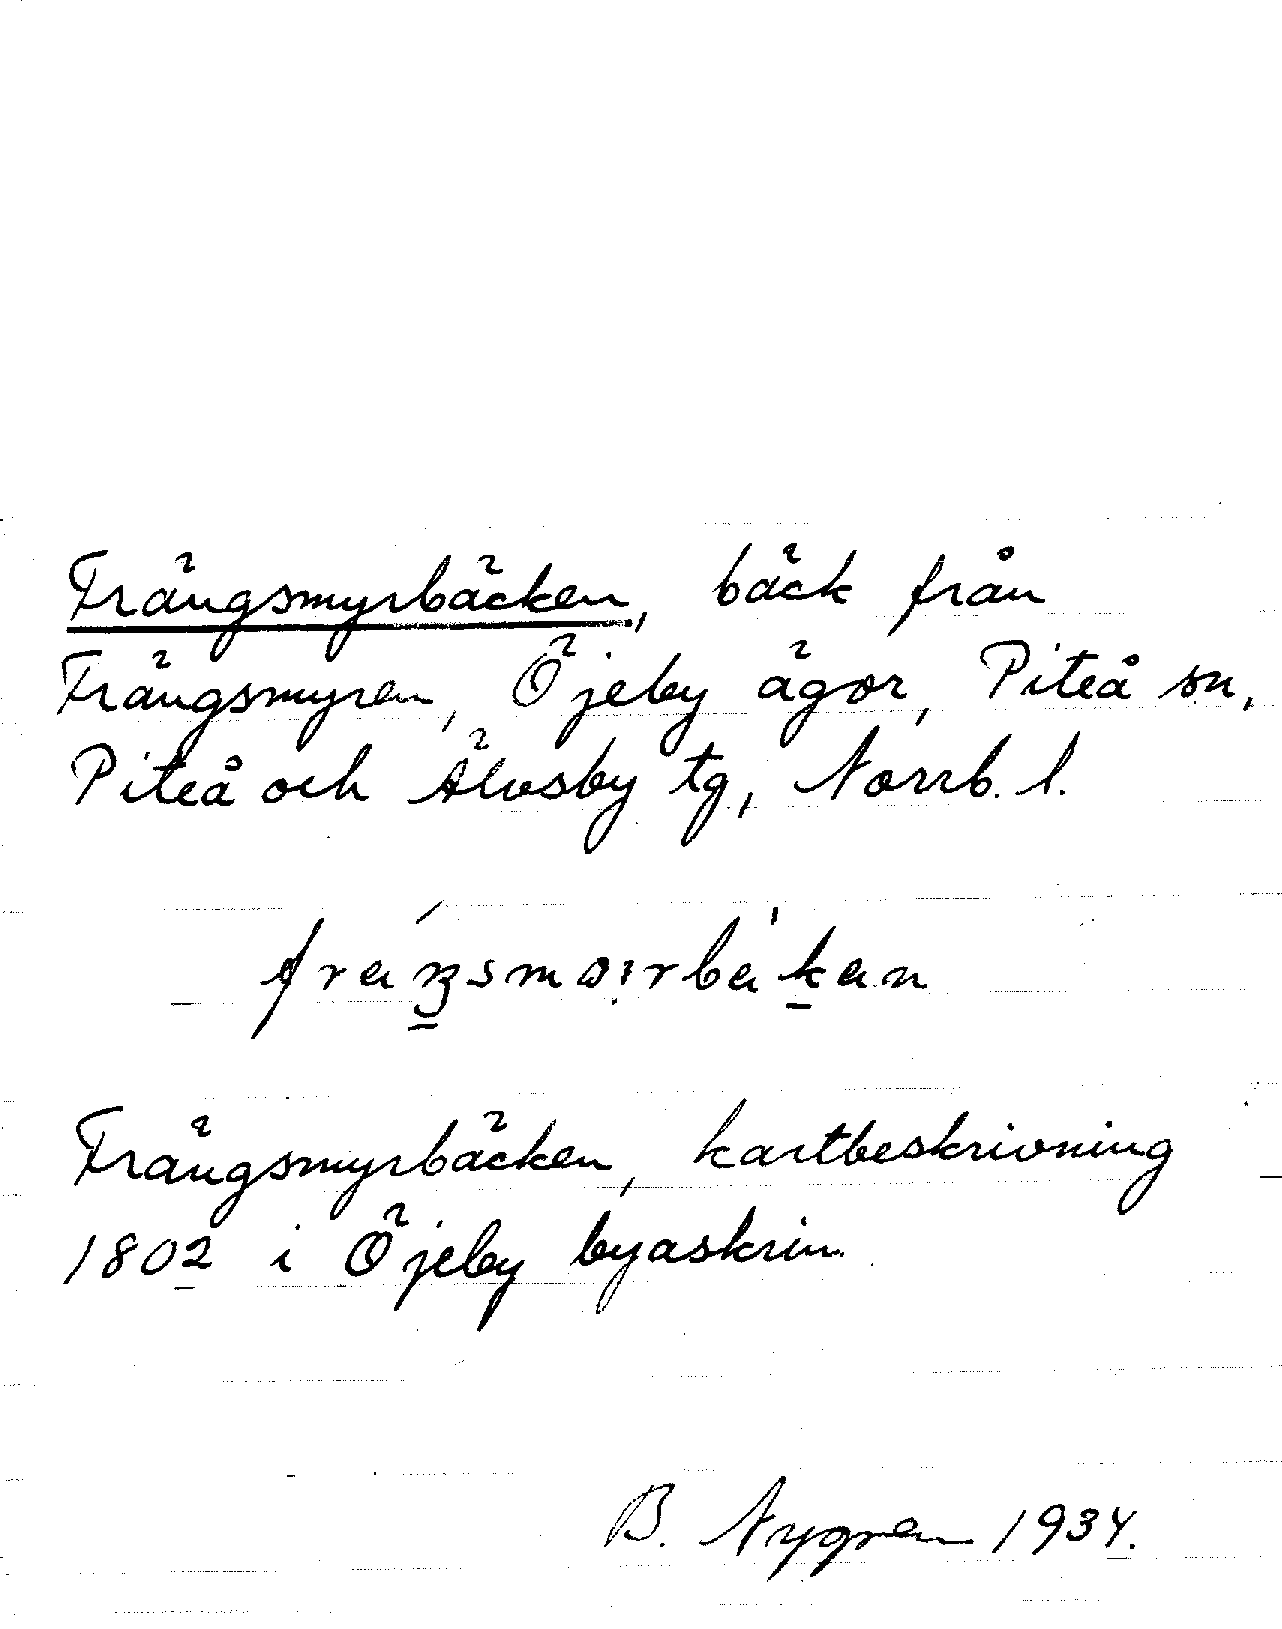 Frängsmyrbäcken, bäck från
Frängsmyren, Öjeby ägor, Piteå sn,
Piteå och Älvsby tg, Norrb. l.
Frängsmyrbäcken, kartbeskrivning
1802 i Öjeby byaskrin.
B. Nygren 1934.